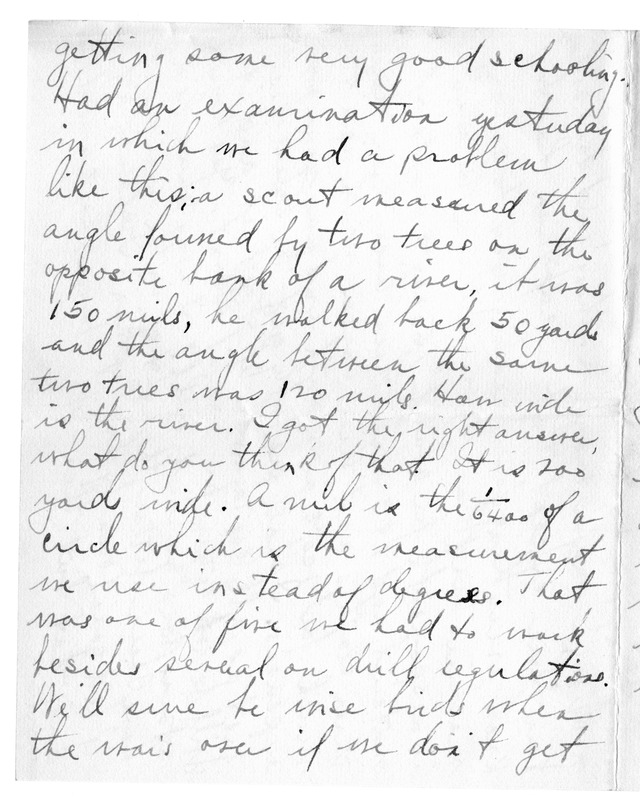 getting some very good schooling.
Had an examination yesterday
in which we had a problem
like this; a scout measured the
angle formed by two trees on the
opposite bank of a river, it was
150 mils, he walked back 50 yards
and the angle between the same
two trees was 120 mils. How wide
is the river. I got the right answer,
what do you think of that. It is 200
yards wide. A mil is the 1/6400 of a
circle which is the measurement
we use instead of degrees. That
was one of five we had to work
besides several on drill regulations.
We'll sure be wise birds when
the war's over if we don't get